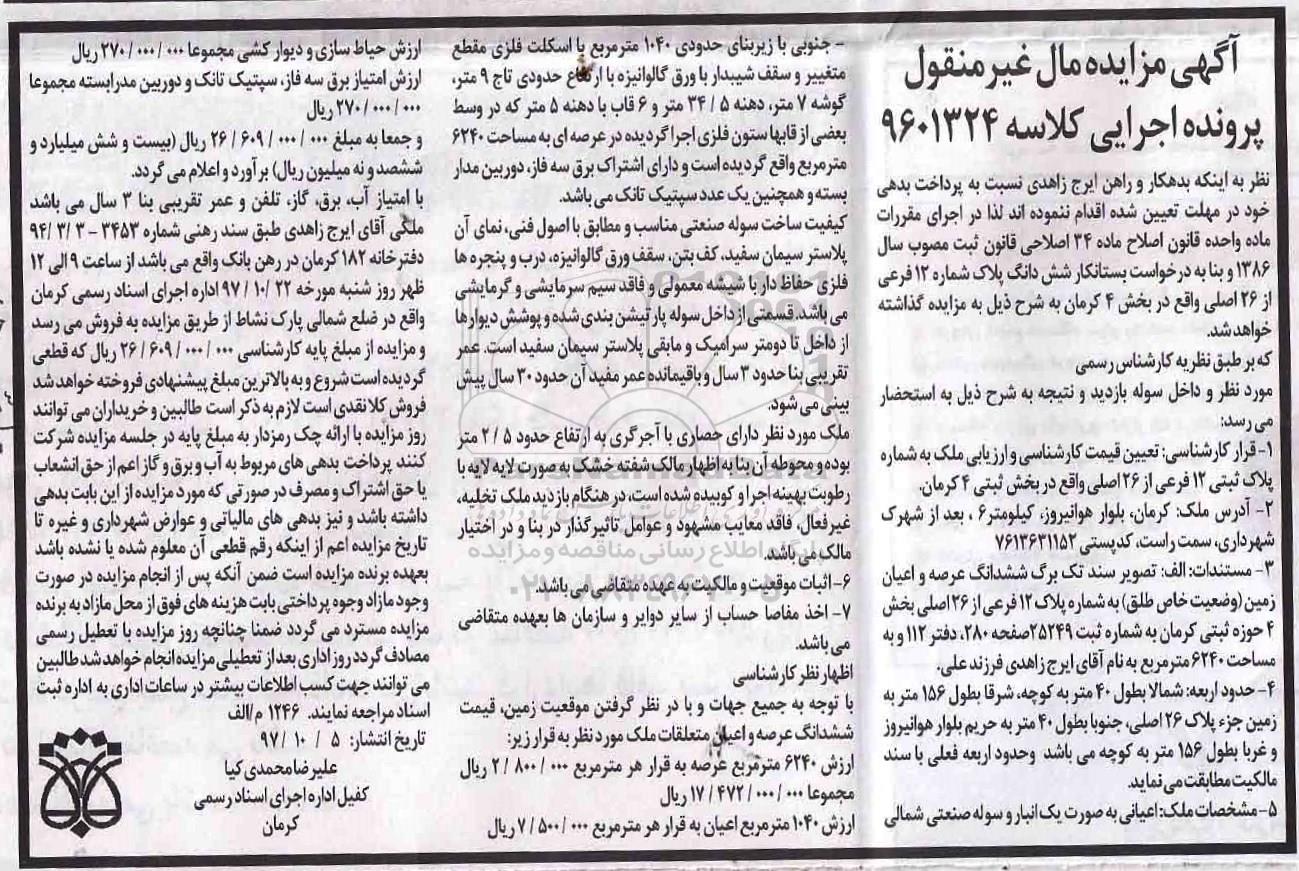 آگهی مزایده مال غیرمنقول
پرونده اجرایی کلاسه ۹۶۰۱۳۲۴
نظر به اینکه بدهکار و راهن ایرج زاهدی نسبت به پرداخت بدهی
خود در مهلت تعیین شده اقدام ننموده اند لذا در اجرای مقررات
ماده واحده قانون اصلاح ماده ۳۴ اصلاحی قانون ثبت مصوب سال
۱۳۸۶ و بنا به درخواست بستانکار شش دانگ پلاک شماره ۱۲ فرعی
از ۲۶ اصلی واقع در بخش ۴ کرمان به شرح ذیل به مزایده گذاشته
خواهد شد.
که بر طبق نظریه کارشناس رسمی
مورد نظر و داخل سوله بازدید و نتیجه به شرح ذیل به استحضار
می رسد:
۱- قرار کارشناسی: تعیین قیمت کارشناسی و ارزیابی ملک به شماره
پلاک ثبتی ۱۲ فرعی از ۲۶ اصلی واقع در بخش ثبتی ۴ کرمان.
۲- آدرس ملک: کرمان، بلوار هوانیروز، کیلومتر۶ ، بعد از شهرک
شهرداری، سمت راست، کدپستی ۷۶۱۳۶۳۱۱۵۲
۳- مستندات: الف: تصویر سند تک برگ ششدانگ عرصه و اعیان
زمین (وضعیت خاص طلق) به شماره پلاک ۱۲ فرعی از ۲۶ اصلی بخش
۴ حوزه ثبتی کرمان به شماره ثبت ۲۵۲۴۹صفحه ۲۸۰، دفتر ۱۱۲ و به
مساحت ۶۲۴۰ مترمربع به نام آقای ایرج زاهدی فرزند علی،
۴- حدود اربعه: شمالا بطول ۴۰ متر به کوچه، شرقا بطول ۱۵۶ متر به
زمین جزء پلاک ۲۶ اصلی، جنوبا بطول ۴۰ متر به حریم بلوار هوانیروز
و غربا بطول ۱۵۶ متر به کوچه می باشد وحدود اربعه فعلی با سند
مالکیت مطابقت می نماید.
۵- مشخصات ملک: اعیانی به صورت یک انبار و سوله صنعتی شمالی
- جنوبی با زیربنای حدودی ۱۰۴۰ مترمربع با اسکلت فلزی مقطع
متغییر و سقف شیبدار با ورق گالوانیزه با ارتفاع حدودی تاج ۹ متر،
گوشه ۷ متر، دهنه ۵ / ۳۴ متر و ۶ قاب با دهنه ۵ متر که در وسط
بعضی از قابها ستون فلزی اجرا گردیده در عرصه ای به مساحت ۶۲۴۰
مترمربع واقع گردیده است و دارای اشتراک برق سه فاز، دوربین مدار
بسته و همچنین یک عدد سپتیک تانک می باشد.
کیفیت ساخت سوله صنعتی مناسب و مطابق با اصول فنی، نمای آن
پلاستر سیمان سفید، کف بتن، سقف ورق گالوانیزه، درب و پنجره ها
فلزی حفاظ دار با شیشه معمولی و فاقد سیم سرمایشی و گرمایشی
می باشد. قسمتی از داخل سوله پارتیشن بندی شده و پوشش دیوارها
از داخل تا دومتر سرامیک و مابقی پلاستر سیمان سفید است. عمر
تقریبی بنا حدود ۳ سال و باقیمانده عمر مفید آن حدود ۳۰ سال پیش
بینی می شود.
ملک مورد نظر دارای حصاری با آجرگری به ارتفاع حدود ۵ / ۲ متر
بوده و محوطه آن بنا به اظهار مالک شفته خشک به صورت لایه لایه با
رطوبت بهینه اجرا و کوبیده شده است، در هنگام بازدید ملک تخلیه،
غیرفعال، فاقد معایب مشهود و عوامل تاثیرگذار در بنا و در اختیار
مالک می باشد.
۶- اثبات موقعیت و مالکیت به عهده متقاضی می باشد.
۷- اخذ مفاصا حساب از سایر دوایر و سازمان ها بعهده متقاضی
می باشد.
اظهار نظر کارشناسی
با توجه به جمیع جهات و با در نظر گرفتن موقعیت زمین، قیمت
ششدانگ عرصه و اعیان متعلقات ملک مورد نظر به قرار زیر:
ارزش ۶۲۴۰ مترمربع عرصه به قرار هر مترمربع ۰۰۰ / ۸۰۰ / ۲ ریال
مجموعا ۰۰۰ / ۰۰۰ / ۴۷۲ / ۱۷ ریال
ارزش ۱۰۴۰ مترمربع اعیان به قرار هر مترمربع ۰۰۰ / ۵۰۰ / ۷ ریال
ارزش حیاط سازی و دیوار کشی مجموعا ۰۰۰ / ۰۰۰ / ۲۷۰ ریال
ارزش امتیاز برق سه فاز، سپتیک تانک و دوربین مدرابسته مجموعا
۰۰۰ / ۰۰۰ / ۲۷۰ ریال
و جمعا به مبلغ ۰۰۰ / ۰۰۰ / ۶۰۹ / ۲۶ ریال (بیست و شش میلیارد و
ششصد و نه میلیون ریال) برآورد و اعلام می گردد.
با امتیاز آب، برق، گاز، تلفن و عمر تقریبی بنا ۳ سال می باشد
ملکی آقای ایرج زاهدی طبق سند رهنی شماره ۳۴۵۳ - ۳ / ۳ / ۹۴
دفترخانه ۱۸۲ کرمان در رهن بانک واقع می باشد از ساعت ۹ الی ۱۲
ظهر روز شنبه مورخه ۲۲ / ۱۰ / ۹۷ اداره اجرای اسناد رسمی کرمان
واقع در ضلع شمالی پارک نشاط از طریق مزایده به فروش می رسد
و مزایده از مبلغ پایه کارشناسی ۰۰۰ / ۰۰۰ / ۶۰۹ / ۲۶ ریال که قطعی
گردیده است شروع و به بالاترین مبلغ پیشنهادی فروخته خواهد شد
فروش کلا نقدی است لازم به ذکر است طالبین و خریداران می توانند
روز مزایده با ارائه چک رمزدار به مبلغ پایه در جلسه مزایده شرکت
کنند پرداخت بدهی های مربوط به آب و برق و گاز اعم از حق انشعاب
یا حق اشتراک و مصرف در صورتی که مورد مزایده از این بابت بدهی
داشته باشد و نیز بدهی های مالیاتی و عوارض شهرداری و غیره تا
تاریخ مزایده اعم از اینکه رقم قطعی آن معلوم شده یا نشده باشد
بعهده برنده مزایده است ضمن آنکه پس از انجام مزایده در صورت
وجود مازاد وجوه پرداختی بابت هزینه های فوق از محل مازاد به برنده
مزایده مسترد می گردد ضمنا چنانچه روز مزایده با تعطیل رسمی
مصادف گردد روز اداری بعد از تعطیلی مزایده انجام خواهد شد طالبین
می توانند جهت کسب اطلاعات بیشتر در ساعات اداری به اداره ثبت
اسناد مراجعه نمایند. ۱۲۴۶ م/الف
تاریخ انتشار: ۵ / ۱۰ / ۹۷
علیرضا محمدی کیا
کفیل اداره اجرای اسناد رسمی
کرمان
پایگاه اطلاع رسانی مناقصه و مزایده